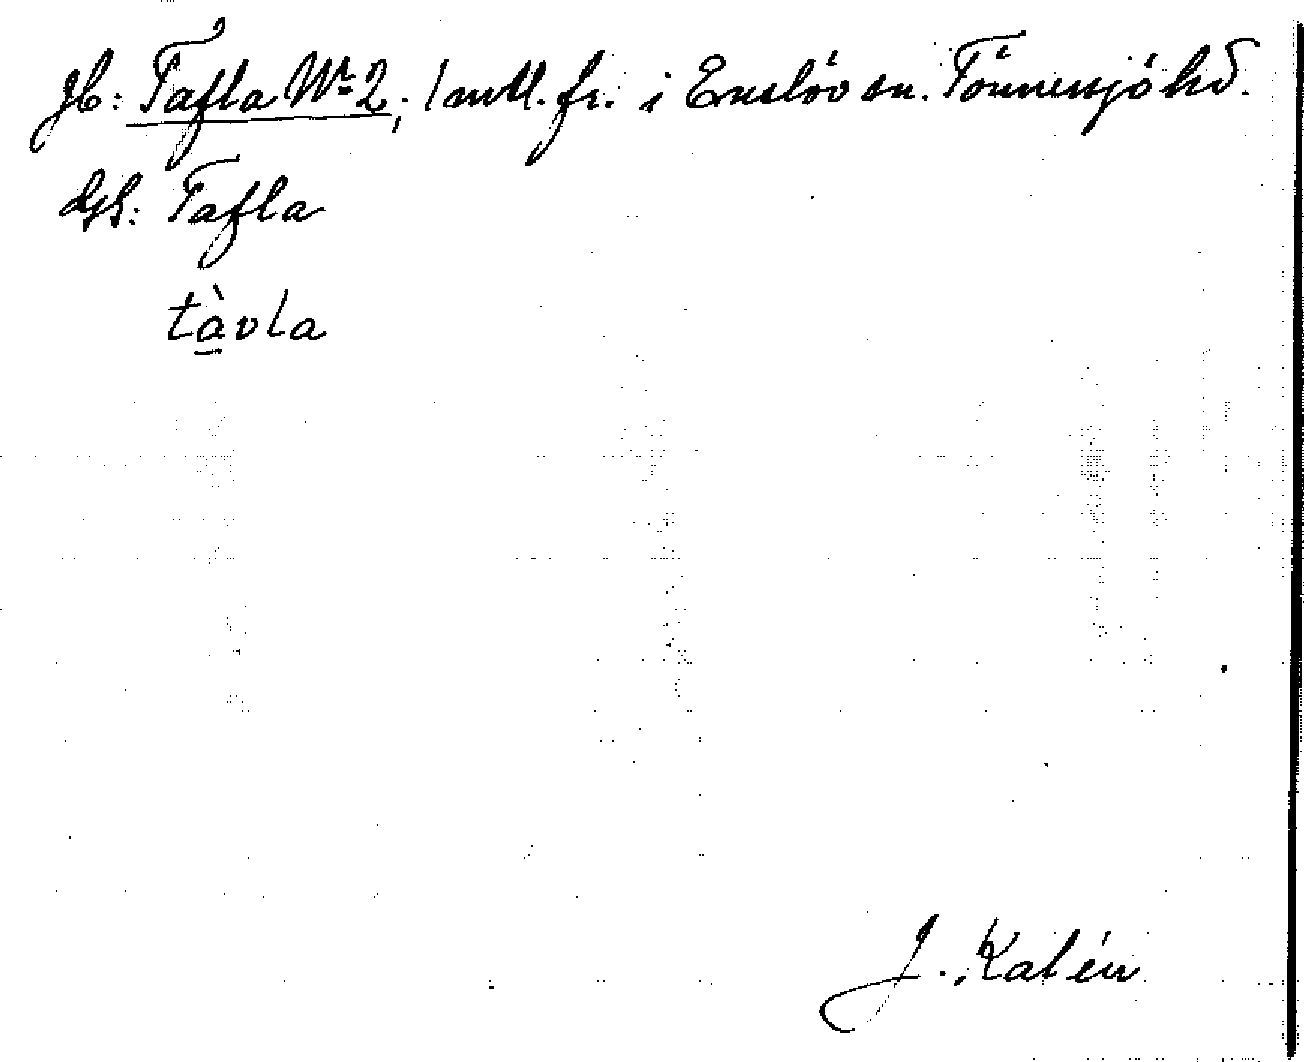 Jb: Tafla Nr 2; 1 mtl. fr. i Enslöv sn. Tönnersjö hd.
Gs: Tafla
tàvla
J. Kalén